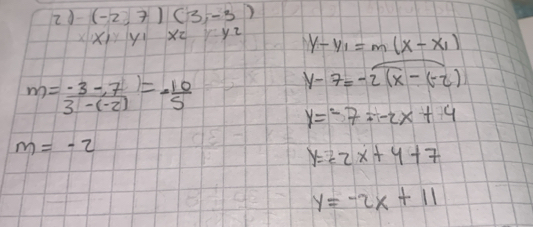 2) (-2, 7) (3, -3)
x1 y1 x2 y2
m = -3 - 7 / 3 - (-2) = -10/5
m = -2
y - y1 = m (x - x1)
y - 7 = -2 (x - (-2)
y = -7 = -2x + 4
y = -2x + 4 + 7
y = -2x + 11